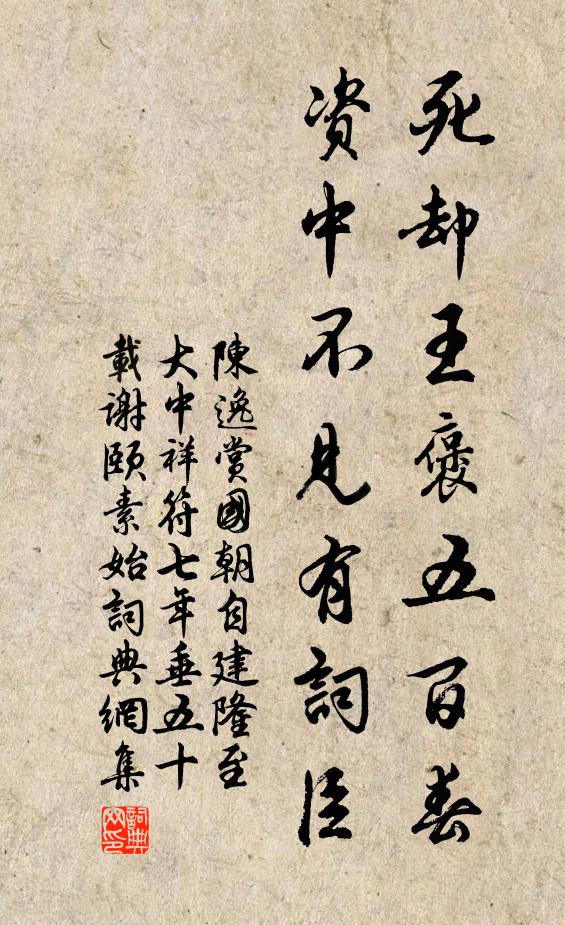 死却王褒五百春
资中不見有詞臣
陳逸賞國朝自建隆至
大中祥符七年垂五十
載謝頤素始詞典網集
詞典网印